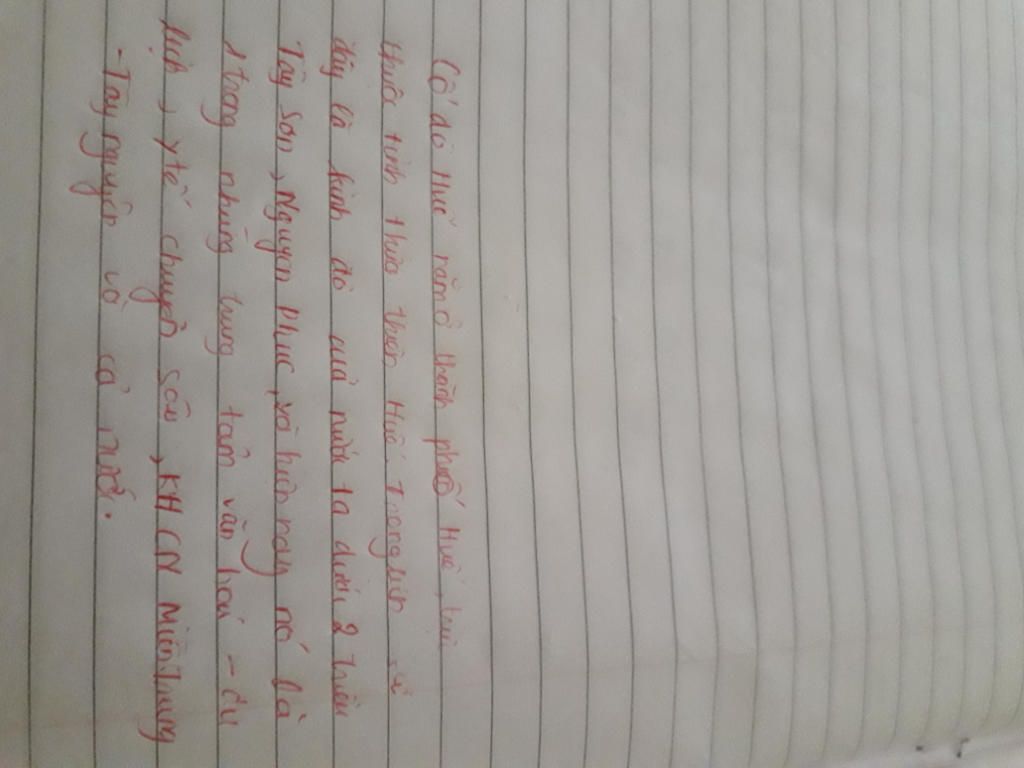 Cố đô Huế nằm ở thành phố Huế, trực
thuộc tỉnh thừa thiên Huế. Trong lịch sử
đây là kinh đô của nước ta dưới 2 triều
Tây Sơn, Nguyễn Phúc, và hiện nay nó là
1 trong nhưng trung tâm văn hoá - du
lịch, y tế chuyên sâu, KHCN Miền Trung
- Tây nguyên và cả nước.